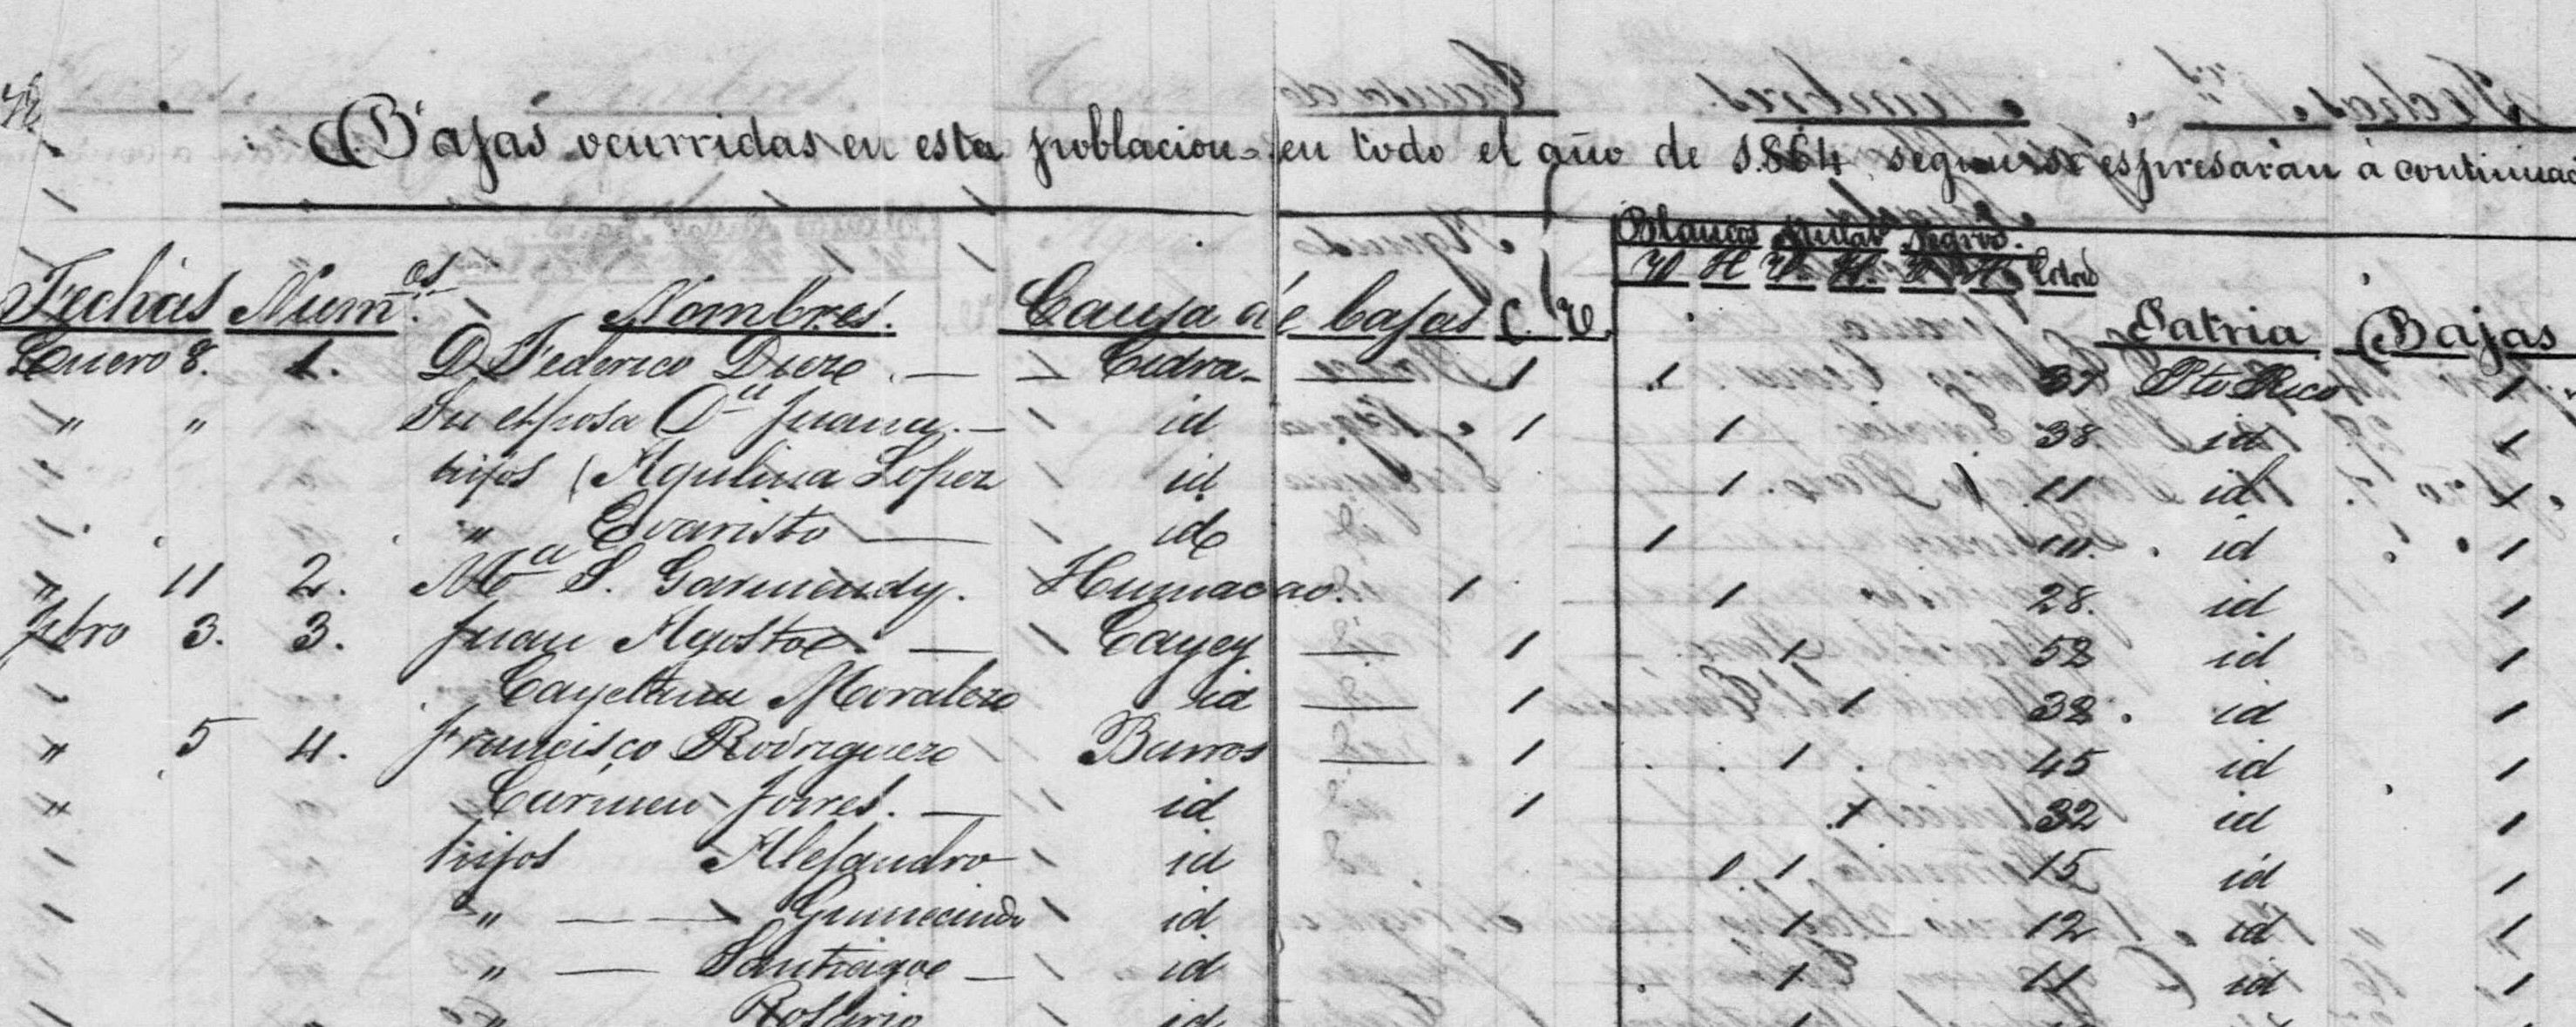 Bajas ocurridas en esta poblacion en todo el año de 1.864 segun se espresarán á continuac
Blancos Mulat Negros
V H V. H. V H. Edad
Fechas Num.os Nombres. Causa de bajas C. V. Patria Bajas
Enero 8. 1. D. Federico Diez — — Cidra — 1 1 37 Pto Rico 1
" " Su esposa Da Juana — id 1 1 38 id 1
hijos Aqulina Lopez id 1 11 id 1
" Evaristo — id 1 10. id 1
" 11 2. Ma S. Garmendy. Humacao. 1 1 28. id 1
Febro 3. 3. Juan Agosto — Cayey — 1 1 52 id 1
Cayetana Moralez id — 1 1 38. id 1
" 5 4. Francisco Rodriguez Barros — 1 1 45 id 1
" Cármen Torres. — id 1 1 32 id 1
hijos Alejandro id 1 15 id 1
" — — Gumecindo id 1 12 id 1
" — Santiago — id 1 11 id 1
" Rosario id 1